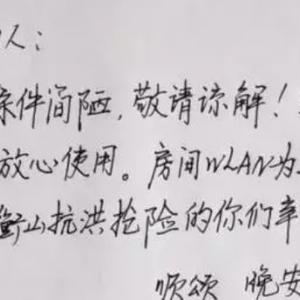 人：
条件简陋，敬请谅解！
放心使用。房间WLAN为
衡山抗洪抢险的你们辛
顺颂 晚安